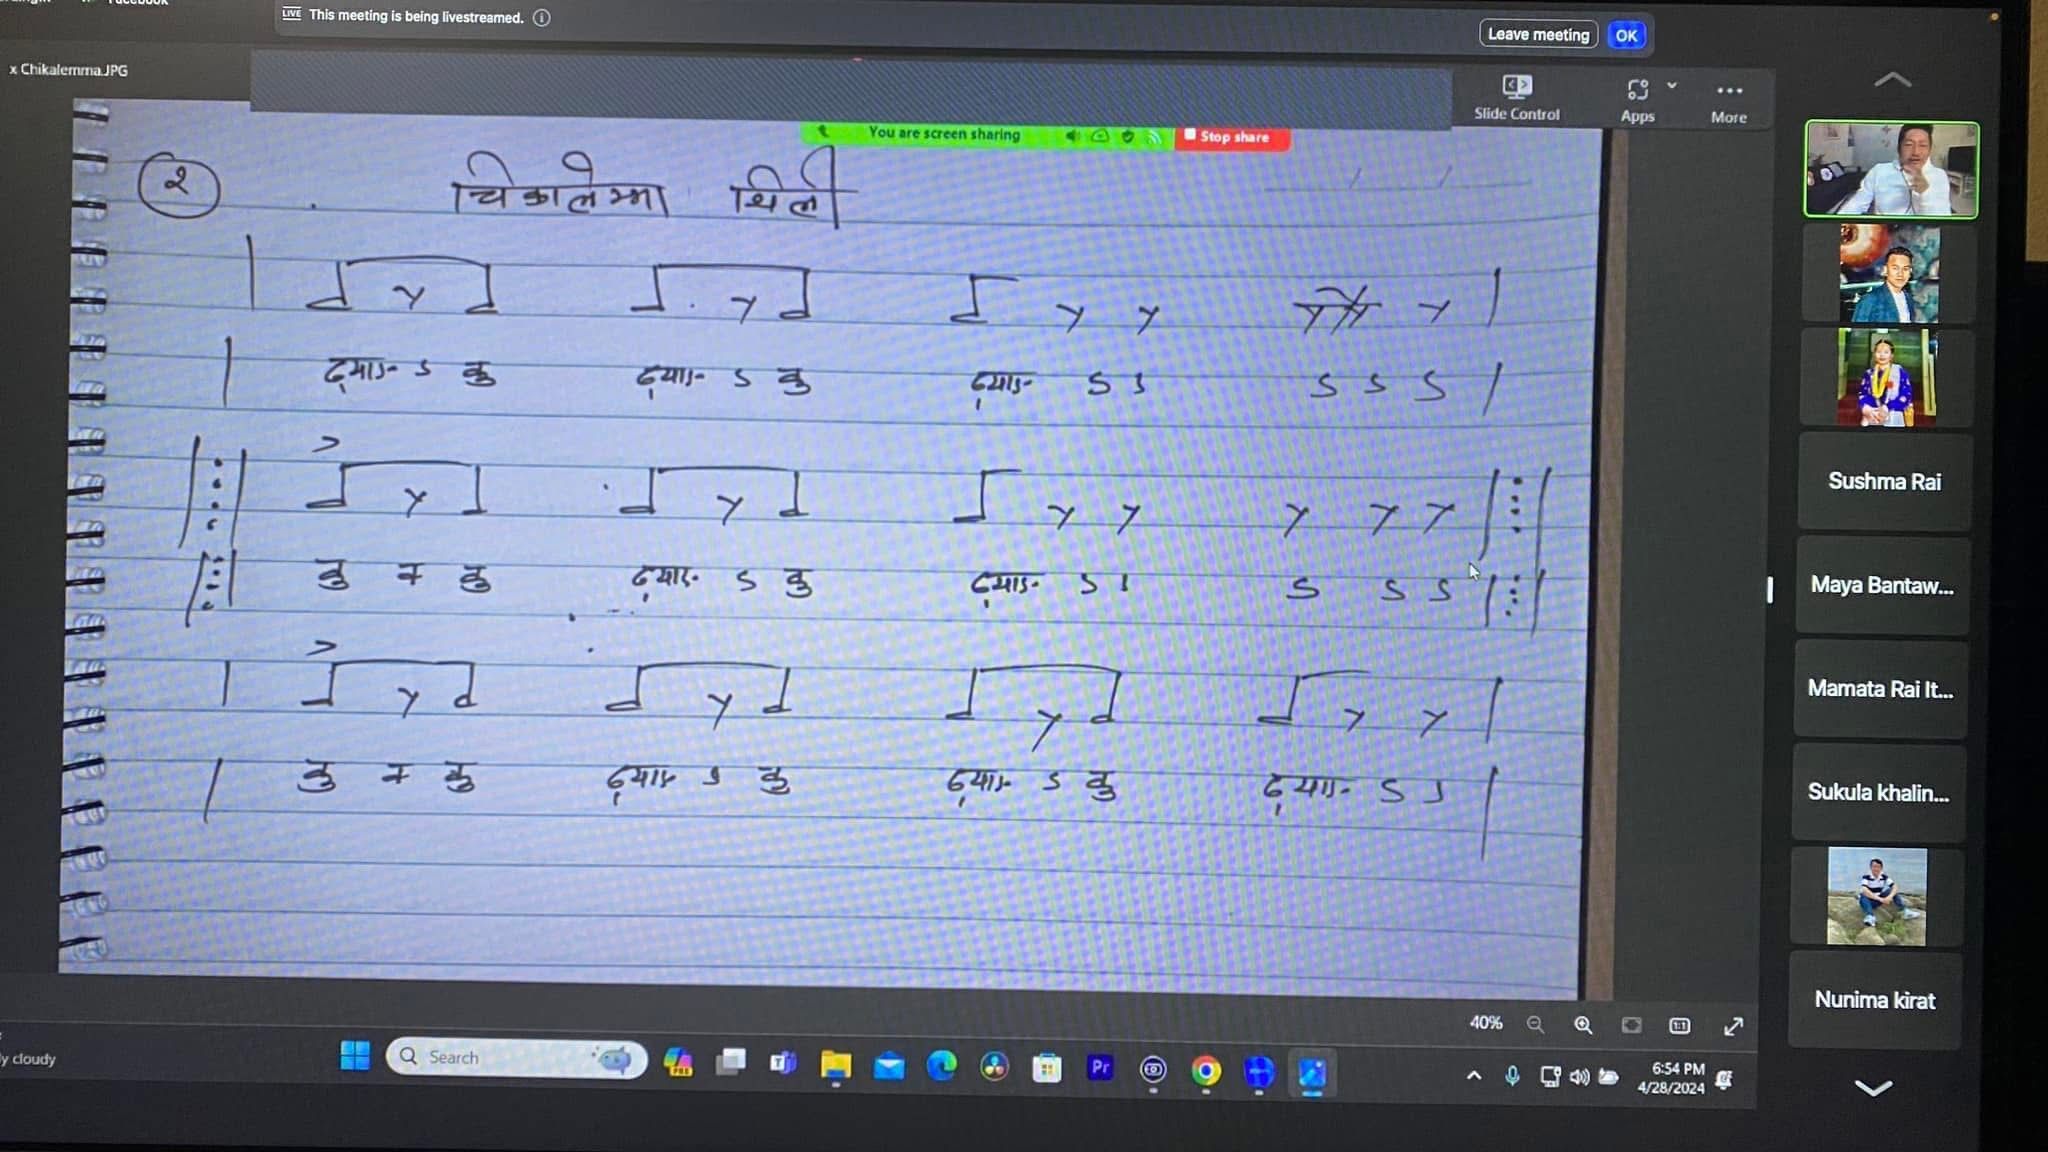 Facebook
LIVE This meeting is being livestreamed.
Leave meeting OK
x Chikalemma.JPG
Slide Control Apps More
You are screen sharing Stop share
२ चिकालेम्मा थिली
| ढ्याङ ऽ कु ढ्याङ ऽ कु ढ्याङ ऽ ऽ ऽ ऽ ऽ |
कु न कु ढ्याङ ऽ कु ढ्याङ ऽ ऽ ऽ ऽ ऽ
| कु न कु ढ्याङ ऽ कु ढ्याङ ऽ कु ढ्याङ ऽ ऽ |
Sushma Rai
Maya Bantaw...
Mamata Rai It...
Sukula khalin...
Nunima kirat
40% 1:1
y cloudy
Search
PRE
Pr
6:54 PM
4/28/2024